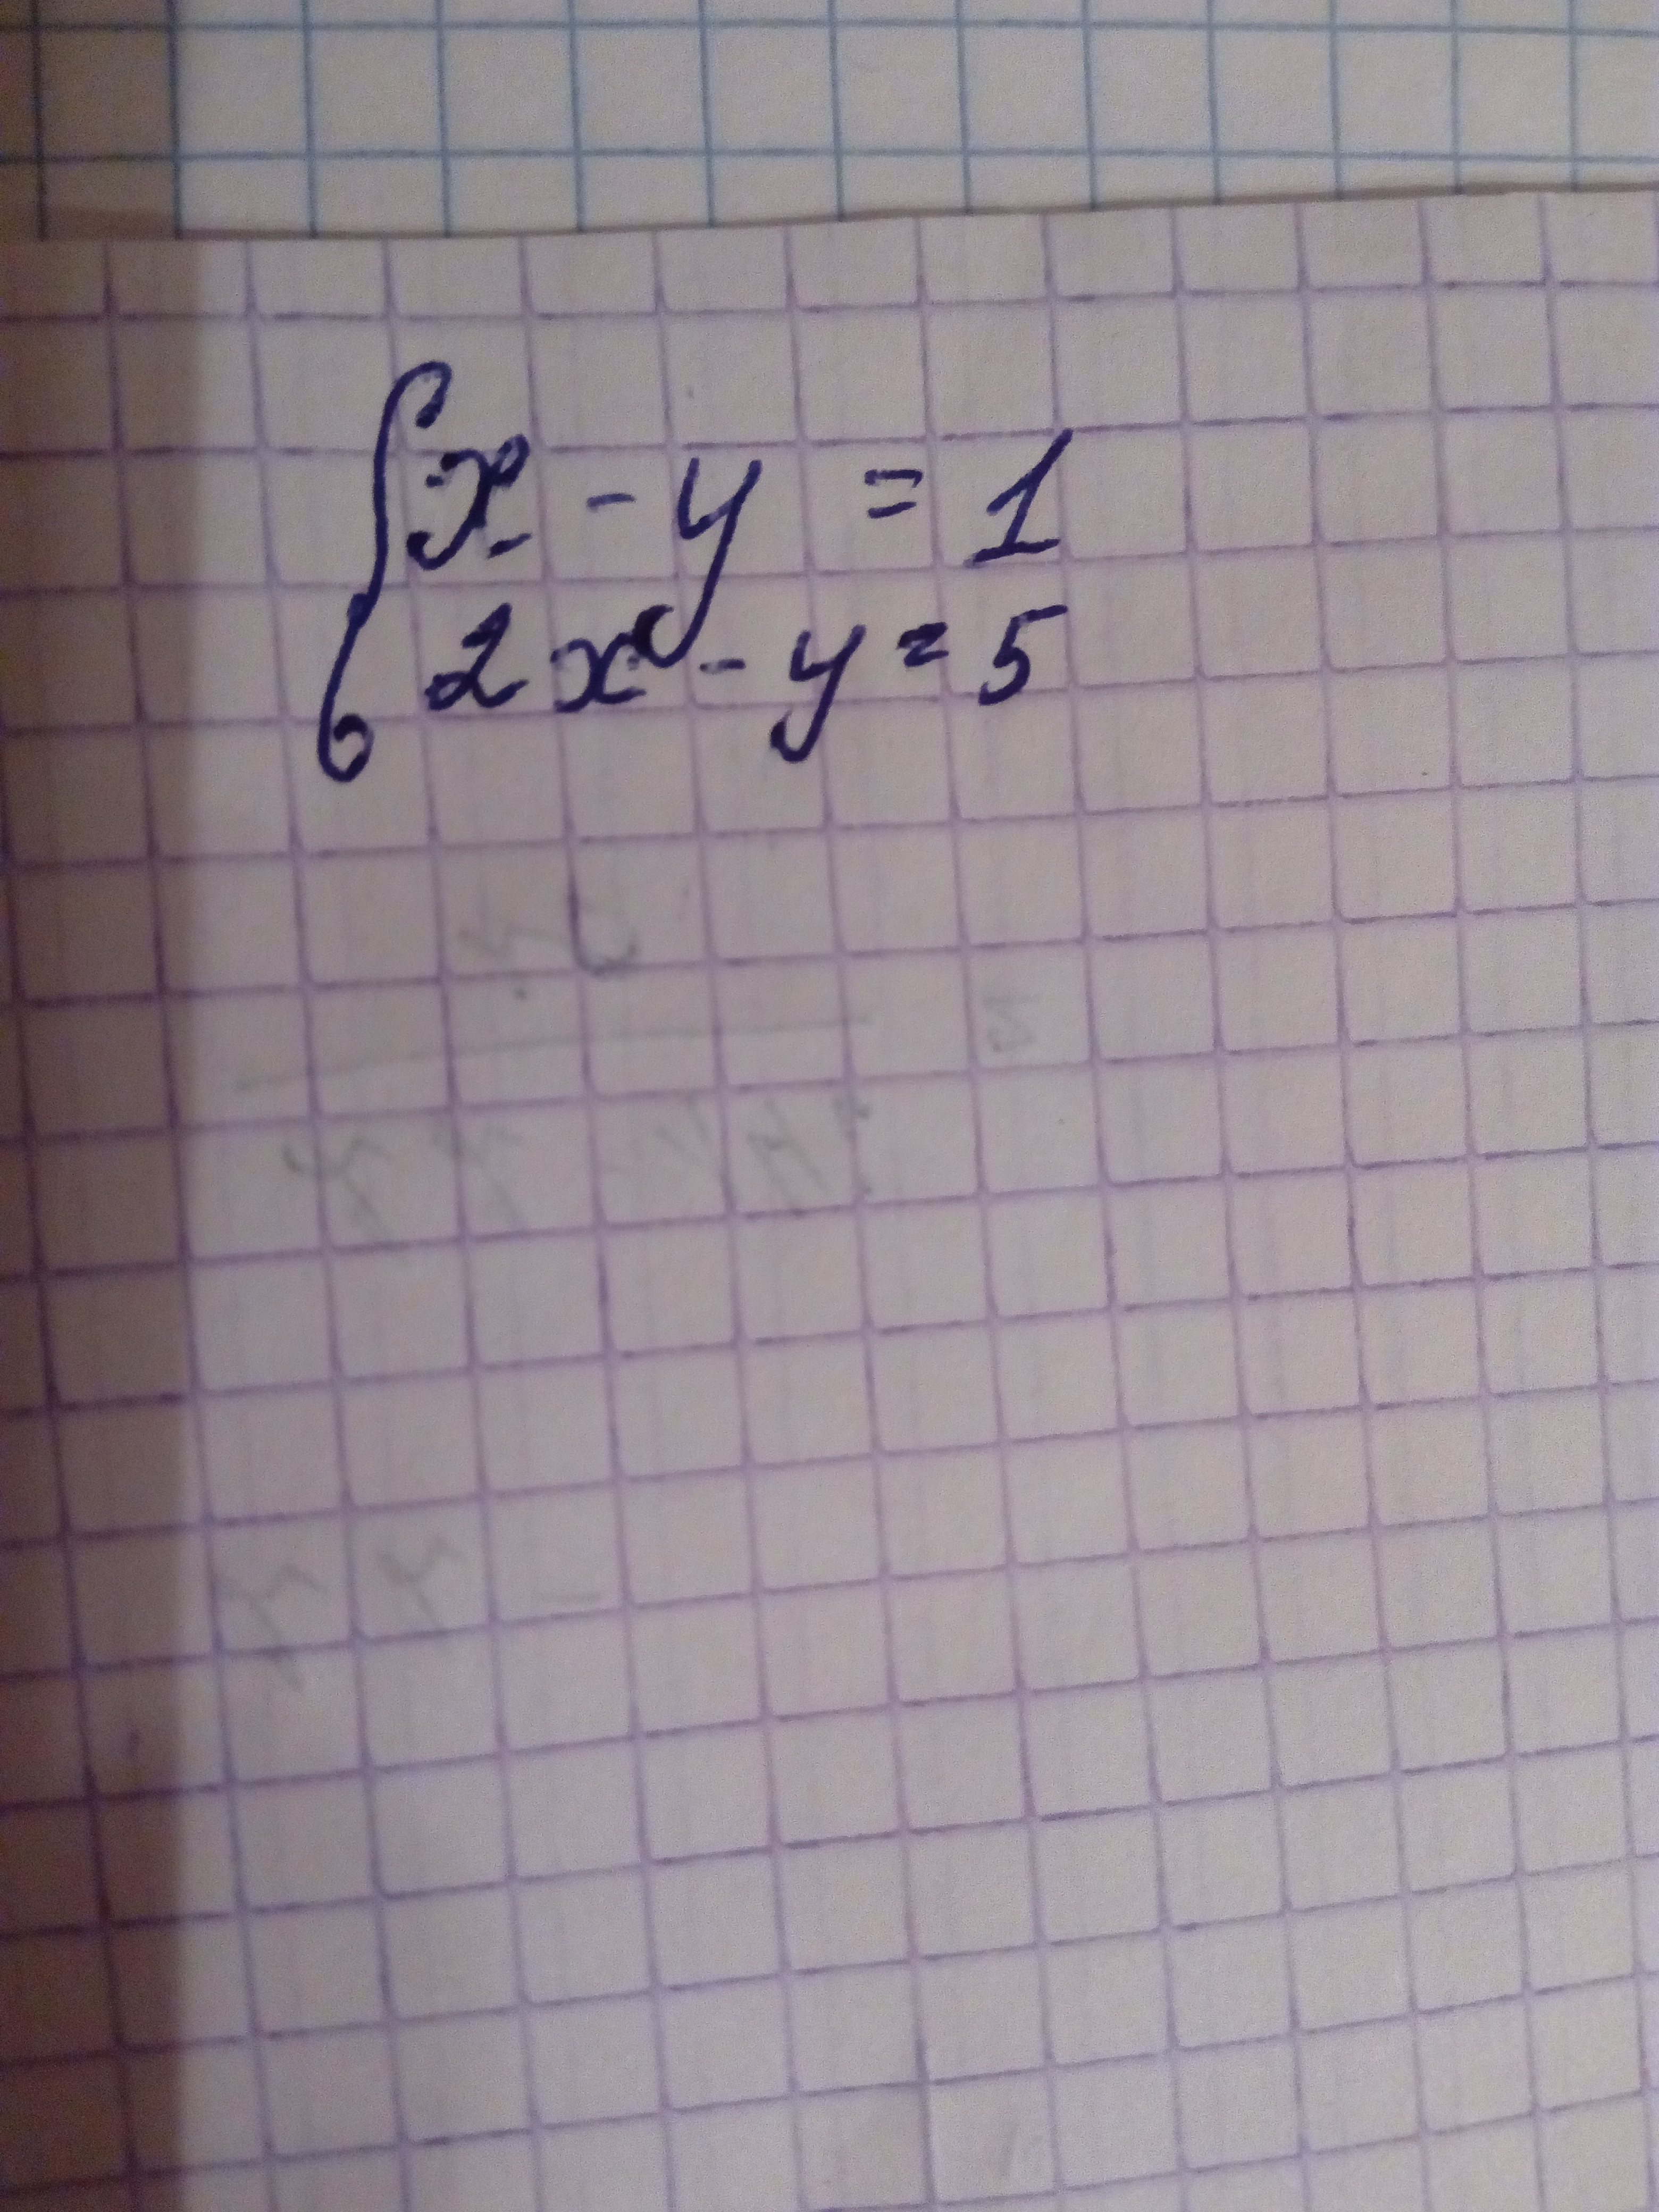 x - y = 1
2x - y = 5